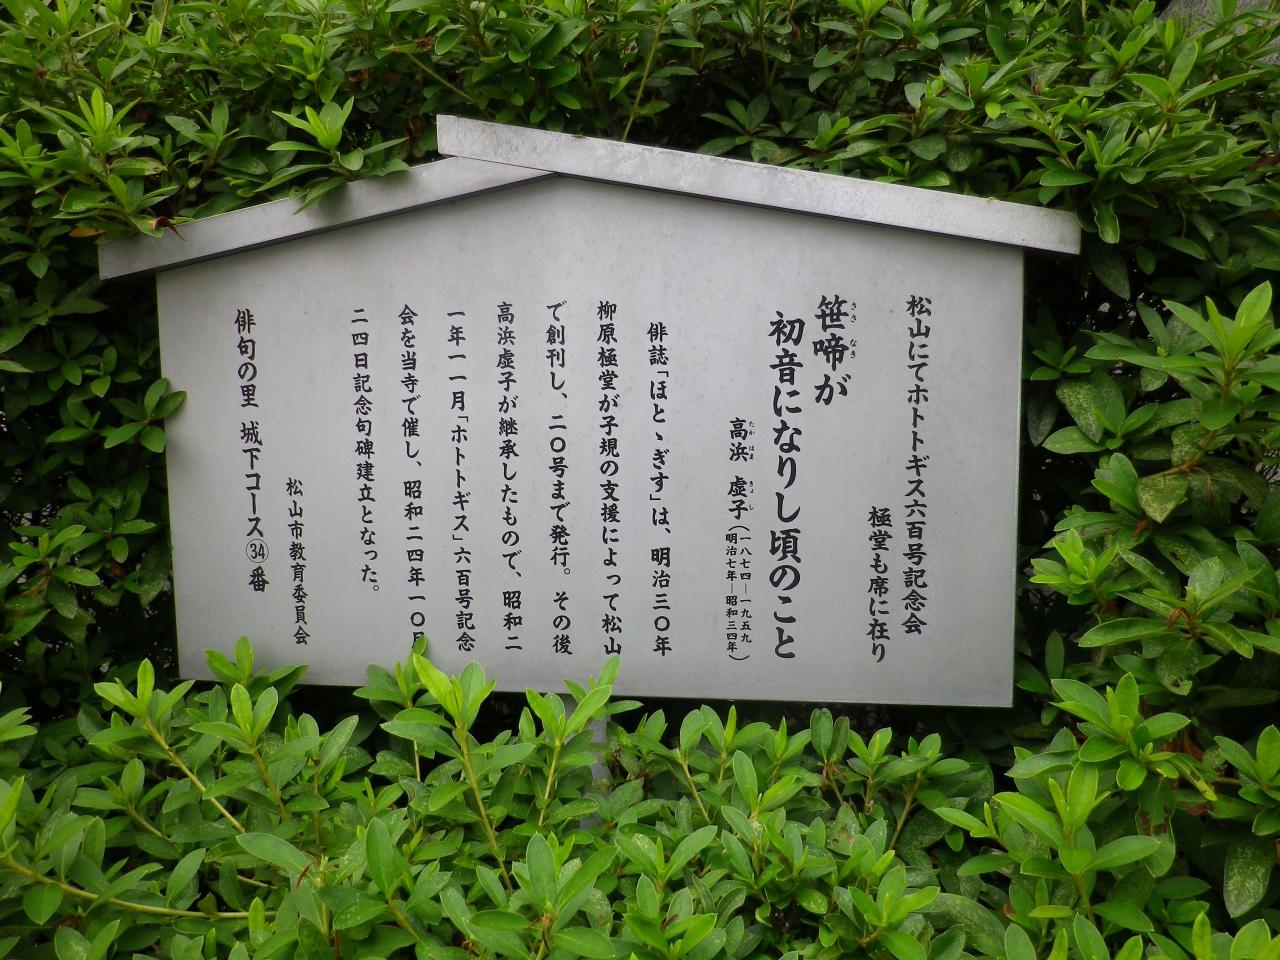 松山にてホトトギス六百号記念会
極堂も席に在り
笹啼が
ささなき
初音になりし頃のこと
高浜虚子(一八七四―一九五九
たかはまきょし
明治七年―昭和三四年)
俳誌「ほとゝぎす」は、明治三〇年
柳原極堂が子規の支援によって松山
で創刊し、二〇号まで発行。その後
高浜虚子が継承したもので、昭和二
一年一一月「ホトトギス」六百号記念
会を当寺で催し、昭和二四年一〇月
二四日記念句碑建立となった。
松山市教育委員会
俳句の里 城下コース㉞番